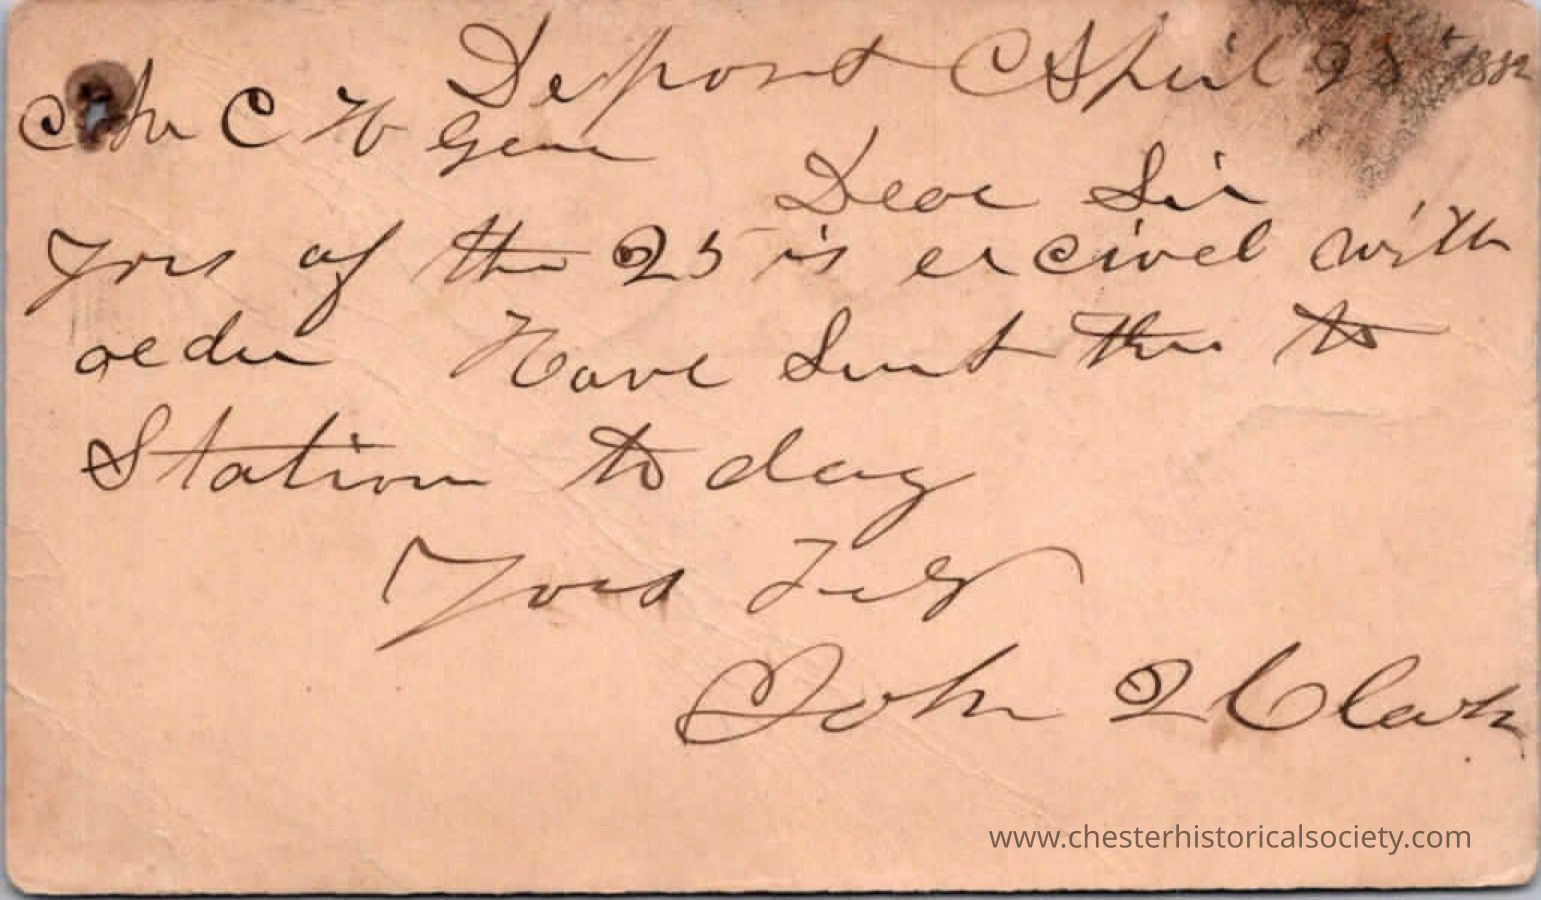 Deposit April 25 1882
C H Gene
Dear Sir
Yors of the 25 is ercived with
order Have Sent the to
Station to day
Yors Truly
John Q Clark
www.chesterhistoricalsociety.com